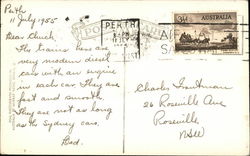 Perth
11 July 1955
Dear Chick
The trains here are
very modern diesel
cars with an engine
in each car. They are
fast and smooth.
They are not as long
as the Sydney cars.
Dad.
PERTH
3½D
AUSTRALIA
Charles
26 Roseville Ave
Roseville
NSW